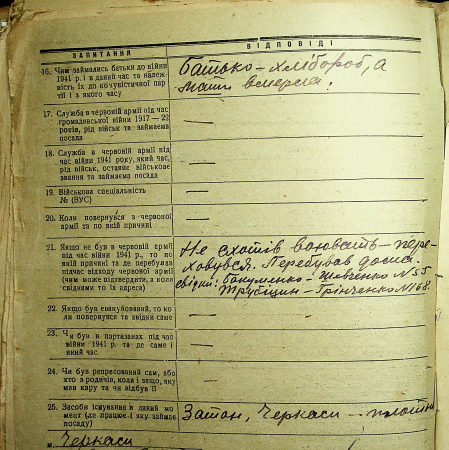 ЗАПИТАННЯ
ВІДПОВІДІ
16. Чим займались батьки до війни
1941 р. і в даний час та належ-
ність їх до комуністичної пар-
тії і з якого часу
батько – хлібороб, а
мати вмерла.
17. Служба в червоній армії під час
громадянської війни 1917 — 22
років, рід військ та займаєма
посада
—
18. Служба в червоній армії під
час війни 1941 року, який час,
рід військ, останнє військове
звання та займаєма посада
—
19. Військова спеціальність
№ (ВУС)
—
20. Коли повернувся з червоної
армії та по якій причині
—
21. Якщо не був в червоній армії
під час війни 1941 р., то по
якій причині та де перебував
підчас відходу червоної армії
(чим може підтвердити, а коли
свідками то їх адреса)
Не схотів воювать – пере-
ховувся. Перебував дома.
свідки: Бакуменко – Шевченко № 55 –
Грінченко № 168.
22. Якщо був евакуйований, то ко-
ли повернувся та звідки саме
—
23. Чи був в партизанах під час
війни 1941 р. та де саме і
який час
—
24. Чи був репресований сам, або
хто з родичів, коли і защо, яку
мав кару та чи відбув її
—
25. Засоби існування в даний мо-
мент (де працює і яку займає
посаду)
Затон, Черкаси –
м. Черкаси